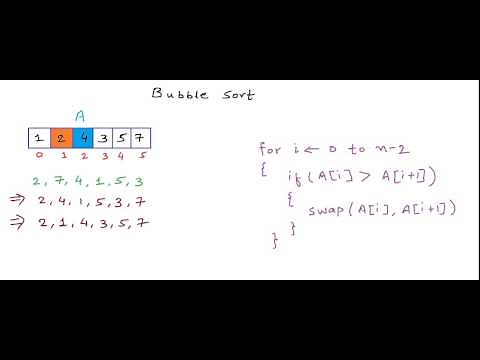 Bubble sort
A
1 2 4 3 5 7
0 1 2 3 4 5
2, 7, 4, 1, 5, 3
⇒ 2, 4, 1, 5, 3, 7
⇒ 2, 1, 4, 3, 5, 7
for i ← 0 to n-2
{
if(A[i] > A[i+1])
{
swap(A[i], A[i+1])
}
}